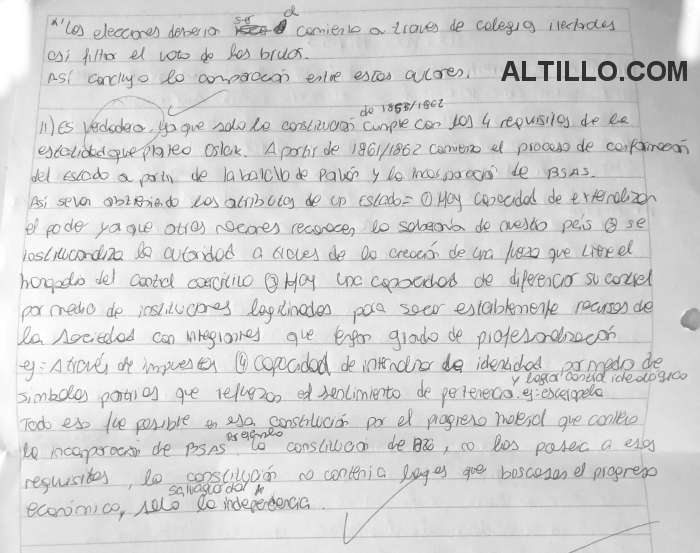 "Las elecciones deberian ser a comienzo a traves de colegios electorales
asi filtar el voto de los brutos.
Asi concluyo la comparación entre estos autores.
ALTILLO.COM
11) Es verdadera, ya que solo la constitución de 1853/1862 cumple con los 4 requisitos de la
estatidad que planteo Oslak. A partir de 1861/1862 comienza el proceso de conformación
del Estado a partir de la batalla de Pavón y la incorporación de BSAS.
Asi se van obteniendo los atributos de un Estado= ① Hay capacidad de externalizar
el poder ya que otras naciones reconocen la soberania de nuestro país ② se
institucionaliza la autoridad a traves de la creación de una fuerza que tiene el
monopolio del control coercitivo ③ Hay una capacidad de diferenciar su control
por medio de instituciones legitimadas para sacar establemente recursos de
la sociedad con integrantes que tengan grado de profesionalización
ej= A través de impuestos ④ capacidad de internalizar la identidad por medio de
simbolos patrios que refuerzan el sentimiento de pertenencia y logra control ideológico ej: escarapela
Todo eso fue posible en esa constitución por el progreso material que conllevo
la incorporación de BSAS. Por ejemplo la constitución de 1826, no los poseia a esos
requisitos, la constitución no contenia leyes que buscasen el progreso
económico, solo salvaguardar la independencia.